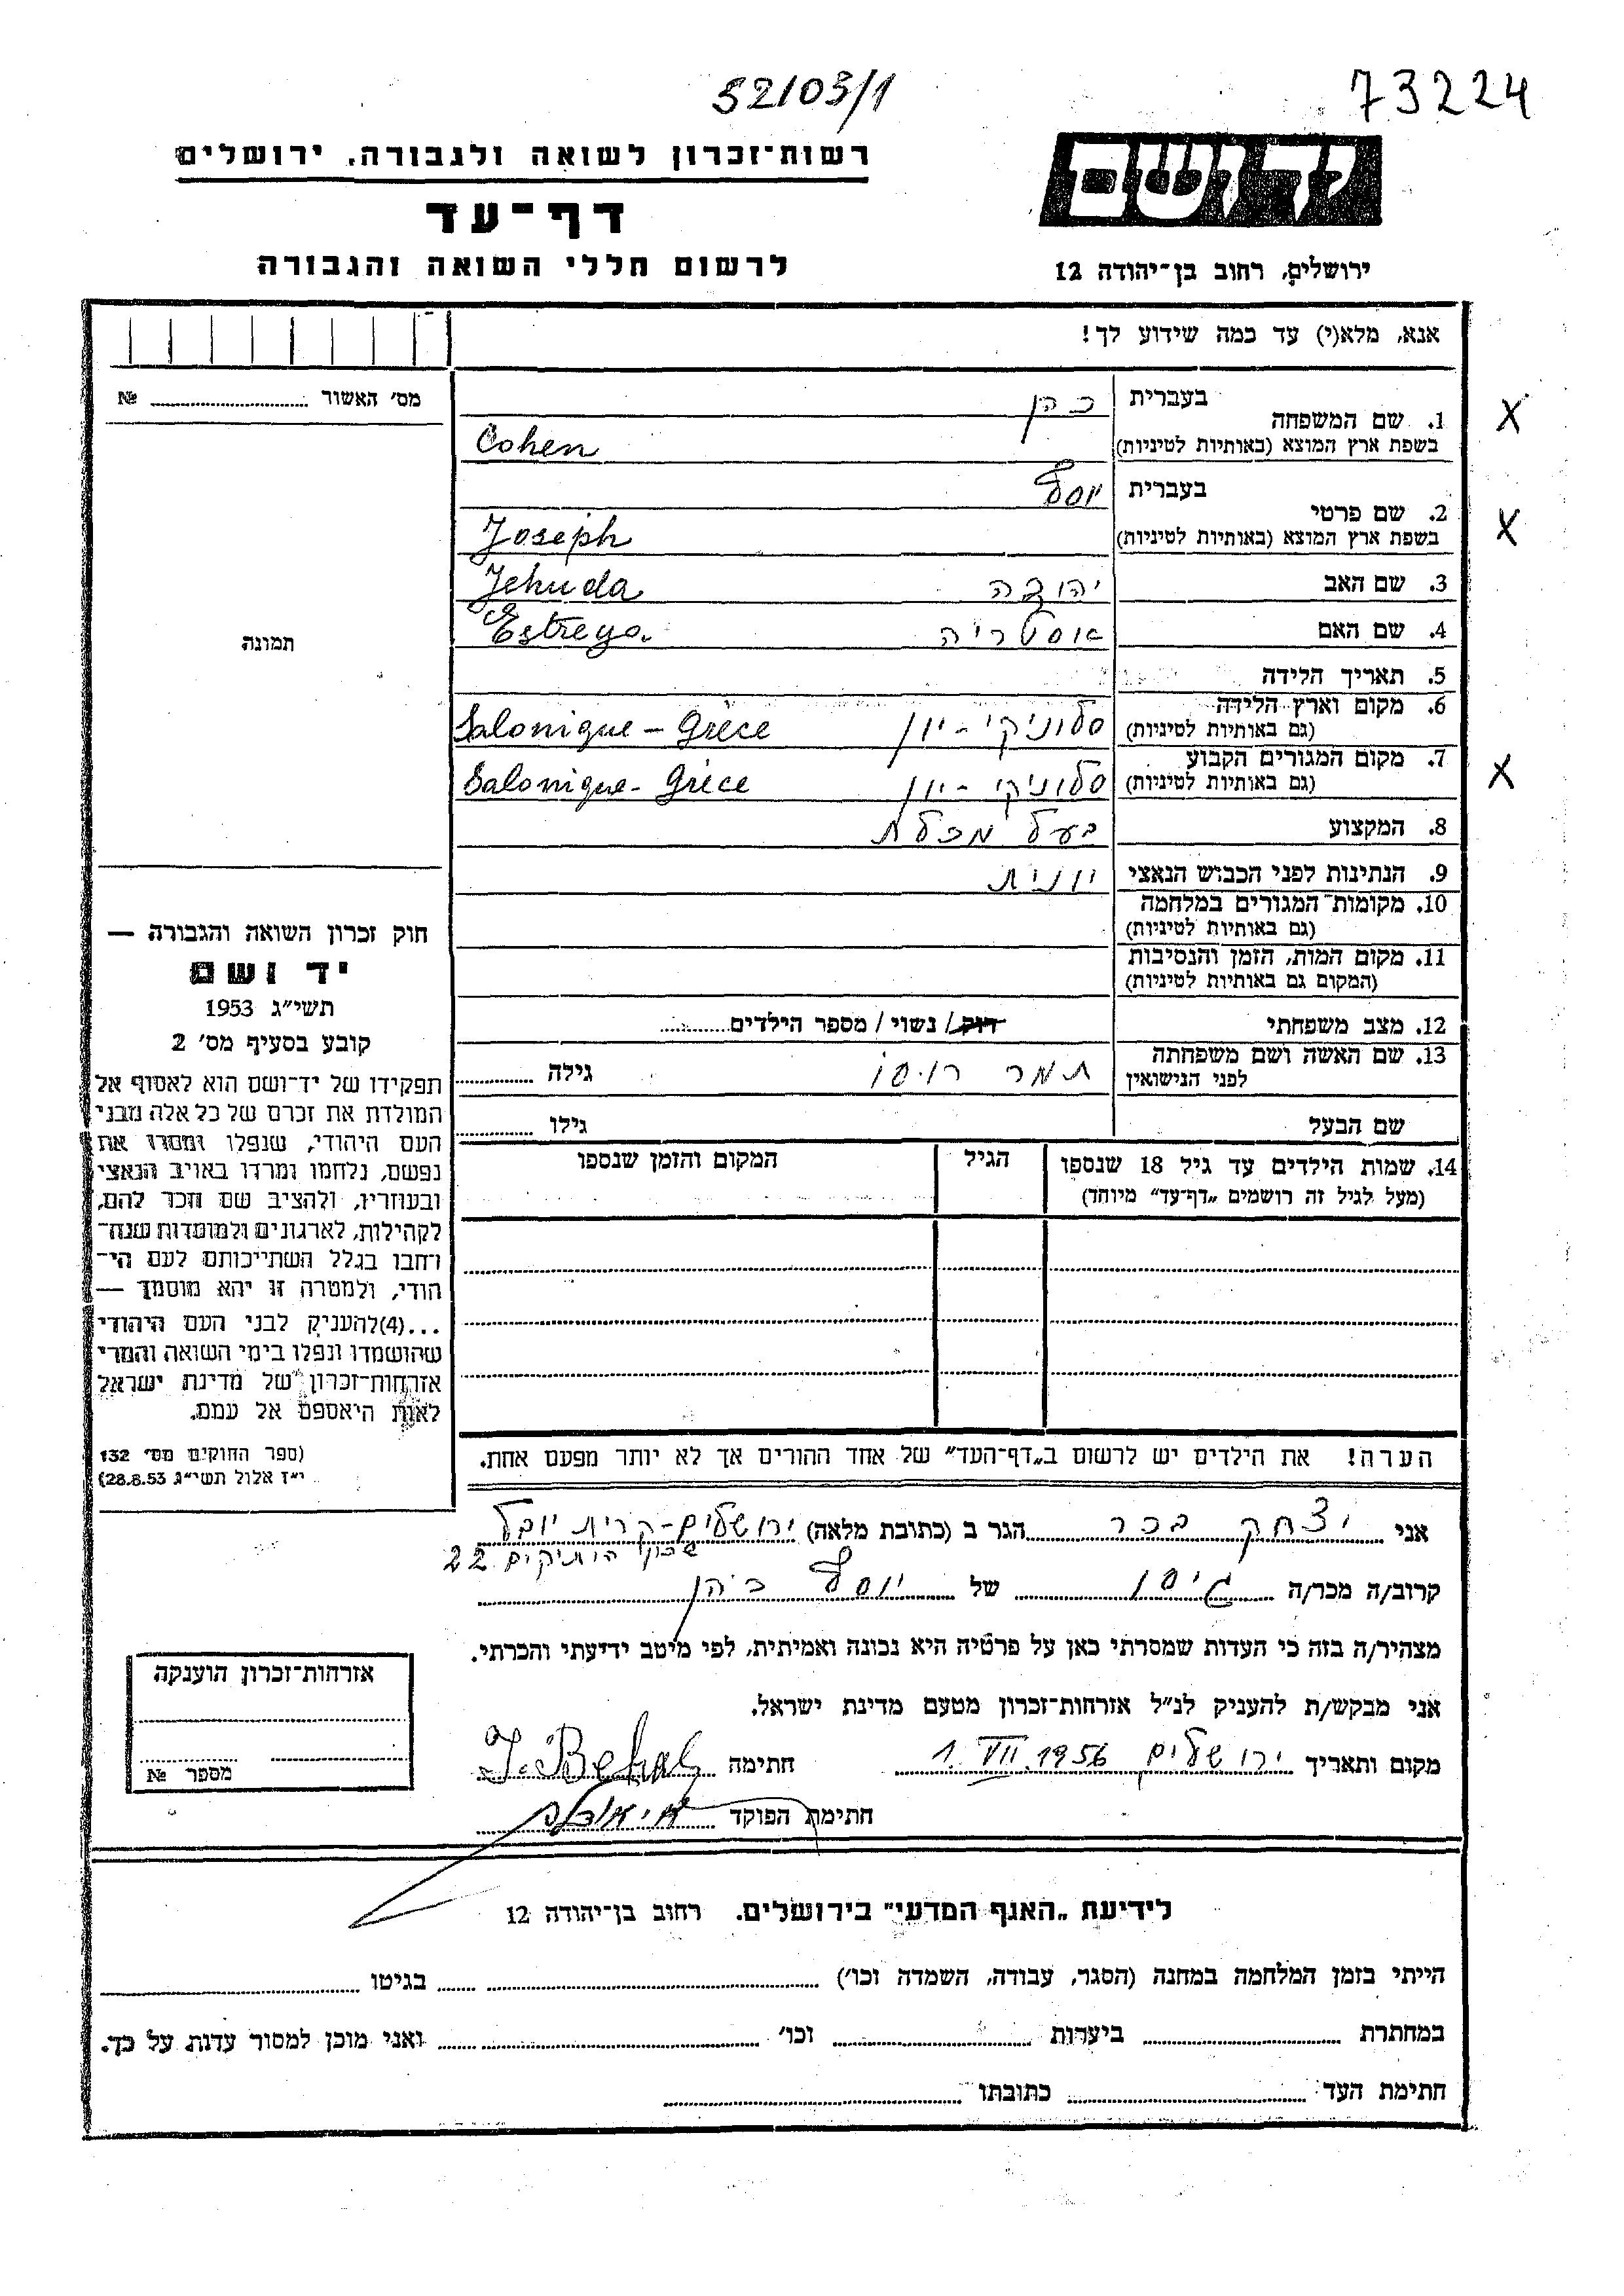 52/03/1
73224
רשות־זכרון לשואה ולגבורה, ירושלים
דף־עד
לרשום חללי השואה והגבורה
יד ושם
ירושלים, רחוב בן־יהודה 12
אנא, מלא(י) עד כמה שידוע לך!
מס׳ האשור № 
תמונה
1. שם המשפחה בעברית כהן X
בשפת ארץ המוצא (באותיות לטיניות) Cohen
2. שם פרטי בעברית יוסף X
בשפת ארץ המוצא (באותיות לטיניות) Joseph
3. שם האב יהודה Jehuda
4. שם האם אסטריה Estreya
5. תאריך הלידה
6. מקום וארץ הלידה סלוניקי - יון Salonique - Grèce
(גם באותיות לטיניות)
7. מקום המגורים הקבוע סלוניקי - יון Salonique - Grèce X
(גם באותיות לטיניות)
8. המקצוע בעל מכלת
9. הנתינות לפני הכבוש הנאצי יונית
10. מקומות־המגורים במלחמה
(גם באותיות לטיניות)
11. מקום המות, הזמן והנסיבות
(המקום גם באותיות לטיניות)
12. מצב משפחתי רוק / נשוי / מספר הילדים
13. שם האשה ושם משפחתה תמר רוסו גילה
לפני הנישואין
שם הבעל גילו
14. שמות הילדים עד גיל 18 שנספו הגיל המקום והזמן שנספו
(מעל לגיל זה רושמים „דף־עד” מיוחד)
חוק זכרון השואה והגבורה —
יד ושם
תשי״ג 1953
קובע בסעיף מס׳ 2
תפקידו של יד־ושם הוא לאסוף אל
המולדת את זכרם של כל אלה מבני
העם היהודי, שנפלו ומסרו את
נפשם, נלחמו ומרדו באויב הנאצי
ובעוזריו, ולהציב שם וזכר להם,
לקהילות, לארגונים ולמוסדות שנח־
רבו בגלל השתייכותם לעם הי־
הודי, ולמטרה זו יהא מוסמך —
...(4)להעניק לבני העם היהודי
שהושמדו ונפלו בימי השואה והמרי
אזרחות־זכרון של מדינת ישראל
לאות היאספם אל עמם.
(ספר החוקים מס׳ 132
י״ז אלול תשי״ג 28.8.53)
הערה! את הילדים יש לרשום ב„דף־העד” של אחד ההורים אך לא יותר מפעם אחת.
אני יצחק בכר הגר ב (כתובת מלאה) ירושלים - קרית יובל
שכון הותיקים 22
קרוב/ה מכר/ה גיסו של יוסף כהן
מצהיר/ה בזה כי העדות שמסרתי כאן על פרטיה היא נכונה ואמיתית, לפי מיטב ידיעתי והכרתי.
אני מבקש/ת להעניק לנ״ל אזרחות־זכרון מטעם מדינת ישראל.
מקום ותאריך ירושלים 1.VII.1956 חתימה
חתימת הפוקד
אזרחות־זכרון הוענקה
מספר №
לידיעת „האגף המדעי” בירושלים. רחוב בן־יהודה 12
הייתי בזמן המלחמה במחנה (הסגר, עבודה, השמדה וכו׳) בגיטו
במחתרת ביערות וכו׳ ואני מוכן למסור עדות על כך.
חתימת העד כתובתו